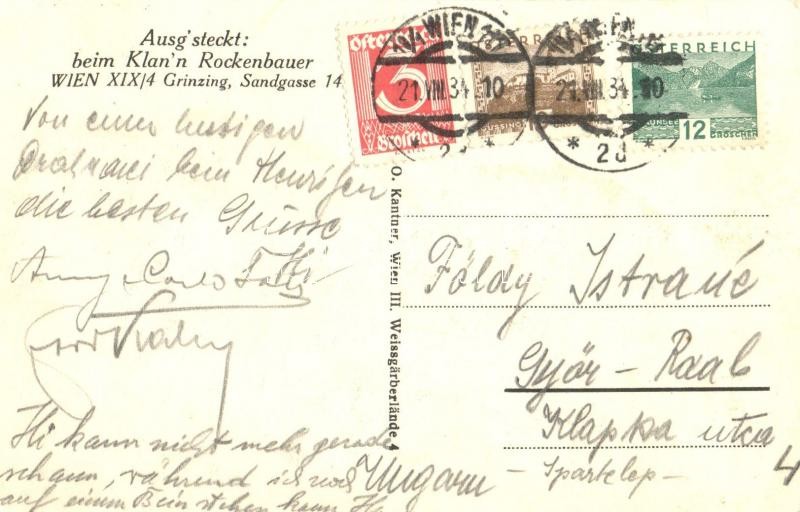 Ausg'steckt:
beim Klan'n Rockenbauer
WIEN XIX/4 Grinzing, Sandgasse 14
Von einer lustigen
Drahrerei beim Heurigen
die besten Grüsse
Hi kann nicht mehr gerade
schaun, während ich noch
auf einem Bein stehen kann Hi
Österreich
3
Groschen
WIEN
21.VIII.34.10
* 2d *
WIEN
21.VIII.34.10
* 2d *
ÖSTERREICH
12
GROSCHEN
O. Kantner, Wien III. Weissgärberlände 4
Földy Istvané
Győr - Raab
Klapka utca 4
- Spartelep -
Ungarn